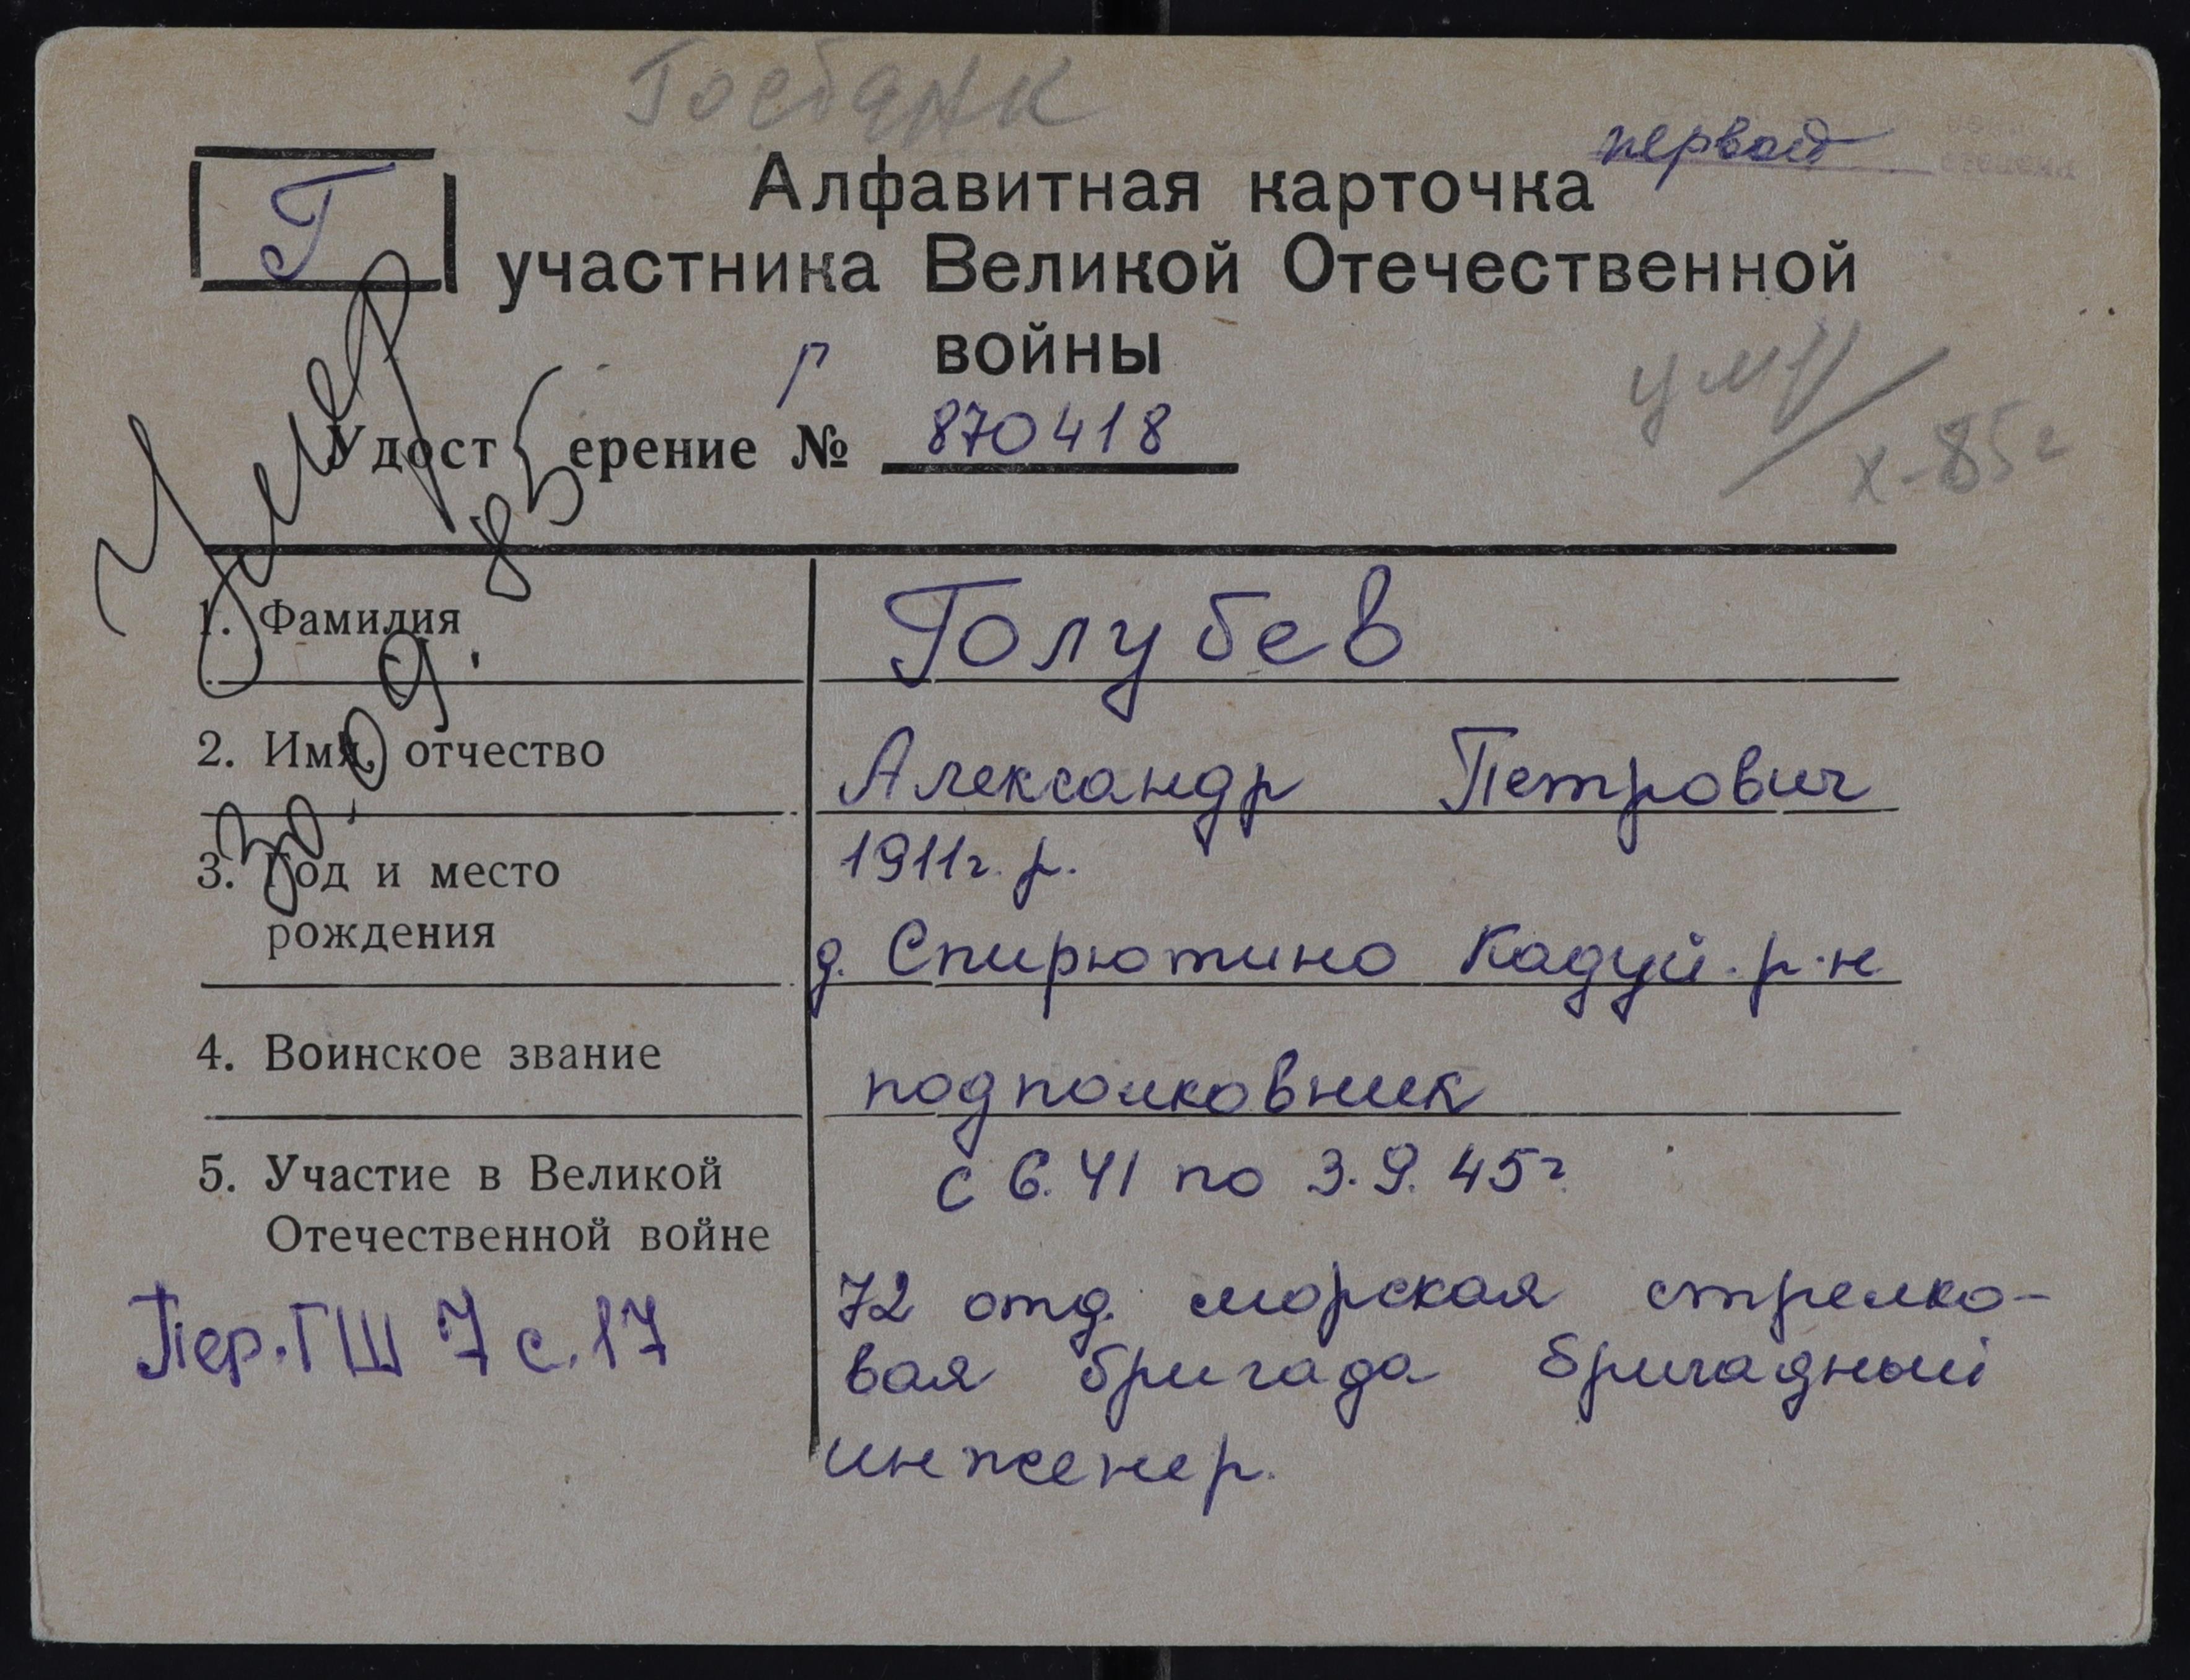 Госбанк
первой
Г
Алфавитная карточка
участника Великой Отечественной
войны
р
Удостоверение № 870418
Умер
30.09.85
умер
X-85г
1. Фамилия
Голубев
2. Имя, отчество
Александр Петрович
3. Год и место
рождения
1911г.р.
д. Спирютино Кадуй. р-н
4. Воинское звание
подполковник
5. Участие в Великой
Отечественной войне
с 6.41 по 3.9.45г.
72 отд. морская стрелко-
вая бригада бригадный
инженер.
Пер.ГШ 7 с.17